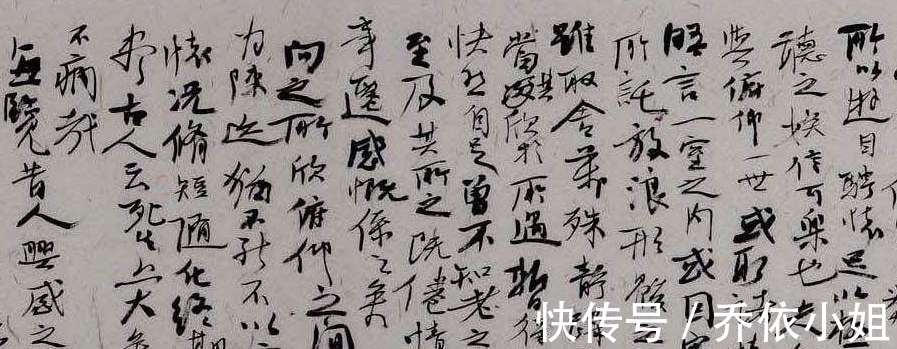 所以遊目騁懷足以
聽之娛信可樂也夫
與俯仰一世或取
晤言一室之內或因
所託放浪形骸之
雖取舍萬殊靜
當其欣於所遇暫得
快然自足曾不知老之
至及其所之既倦情
事遷感慨係之矣
向之所欣俯仰之間
為陳迹猶不能不以
懷況脩短隨化終期
盡古人云死生亦大矣
不痛哉
每覽昔人興感之
快传号 / 乔依小姐